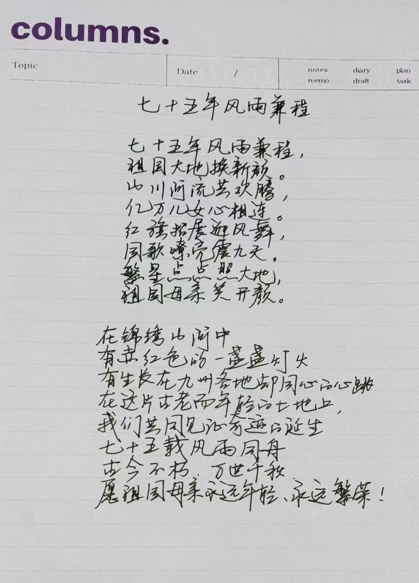 columns.
Topic
Date /
notes diary plan
memo draft task
七十五年风雨兼程
七十五年风雨兼程，
祖国大地换新颜。
山川河流共欢腾，
亿万儿女心相连。
红旗招展迎风舞，
国歌嘹亮震九天。
繁星点点照大地，
祖国母亲笑开颜。
在锦绣山河中
有赤红色的一盏盏灯火
有生长在九州各地却同心的心跳
在这片古老而年轻的土地上，
我们共同见证奇迹的诞生
七十五载风雨同舟
古今不朽，万世千秋
愿祖国母亲永远年轻、永远繁荣！